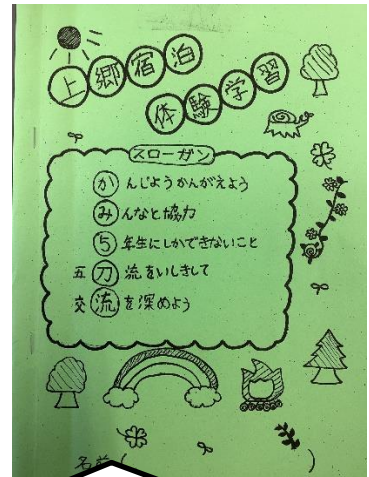 上郷宿泊
体験学習
スローガン
かんじようかんがえよう
みんなと協力
5年生にしかできないこと
五刀流をいしきして
交流を深めよう
名前( )